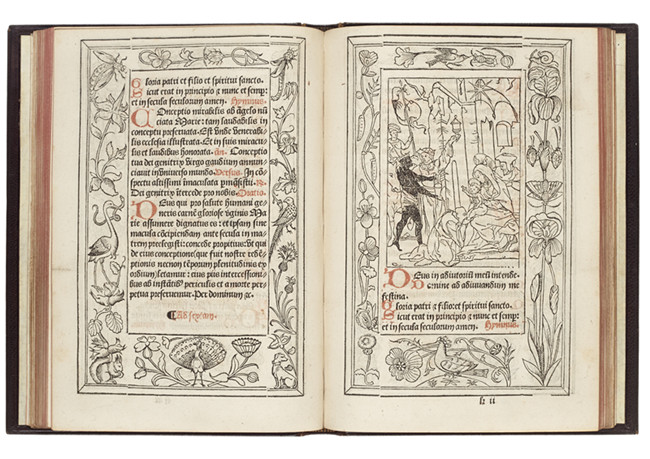 Gloria patri et filio et spiritui sancto.
sicut erat in principio ⁊ nunc et semp:
et in secula seculorum amen. Hymnus.
Conceptio mirabilis ab āgelo nū
ciata Marie: tam laudabilis in
conceptu preseruata. Est vnde venerabi
lis ecclesia illustrata. Et in suis miracu
lis et laudibus honorata. Añ. Conceptio
tua dei genitrix virgo gaudium annun
ciauit in vniuerso mundo. Versus. In cō
spectu altissimi imaculata pmāsisti. ℟.
Dei genitrix ītercede pro nobis. Oratio.
Deus qui pro salute humani ge
neris carnē gloriose virginis Ma
rie assumere dignatus es: et ipsam sine
macula cōcipiendam ante secula in ma
trem preelegisti: concede propitius: Vt qui
de eius conceptione (que fuit nostre redē
ptionis necnon tēporum plenitudinis ex
ordium) letamur: eius piis intercessioni
bus ab instātibꝰ periculis et a morte per
petua preseruemur. Per dominum ⁊c.
¶ Ad sextam.
Deus in adiutoriū meū intende.
Domine ad adiuuandum me
festina.
Gloria patri et filio: et spiritui sancto.
sicut erat in principio et nunc et semp:
et in secula seculorum amen. Hymnus.
h ii